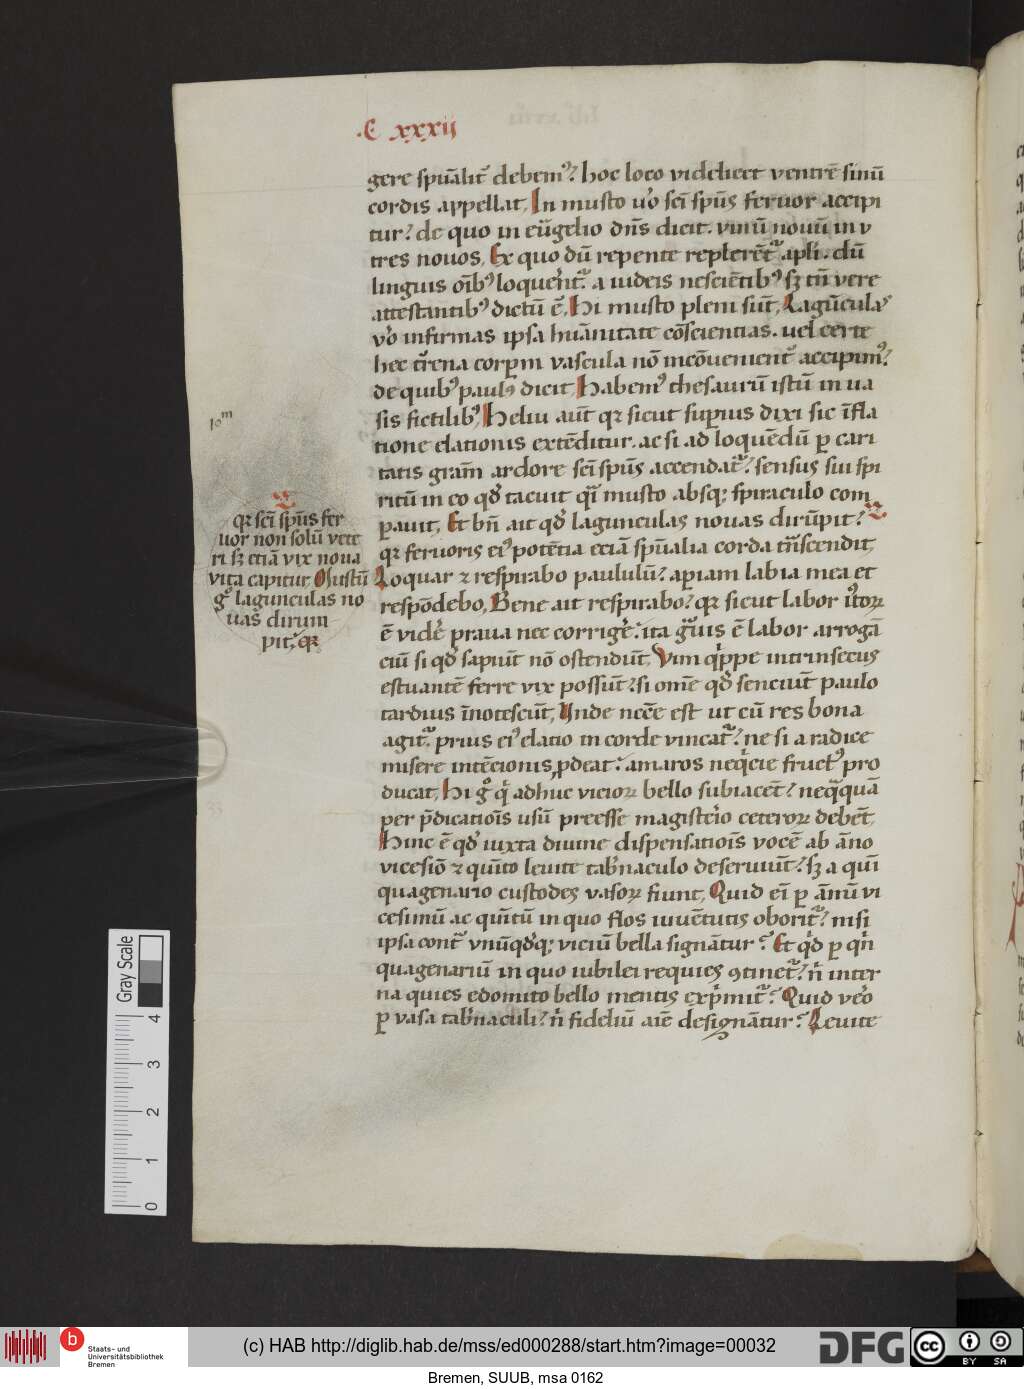 .C xxxij
gere spūalit̄ debem⁹? hoc loco videlicet ventrē sinū
cordis appellat. In musto u̾o sc̄i spūs feruor accipi
tur? de quo in eūgelio dn̄s dicit. vinū nouū in v
tres nouos. Ex quo dū repente replerēt̄ apl̄i. dū
linguis oīb⁹ loquerēt̄. a iudeis nesciētib⁹ sꝫ tn̄ vere
attestantib⁹ dictū ē. Hi musto pleni sūt. Lagūculas
v̾o infirmas ipsa hūanitate cōscientias. uel certe
hec t̾rena corꝑm vascula nō incōuenient̄ accipim⁹?
de quib⁹ paul⁹ dicit. Habem⁹ thesaurū istū in ua
sis fictilib⁹. Heliu aūt qꝛ sicut suꝑius dixi sic īfla
tione elationis extēditur. ac si ad loquēdū ꝑ cari
tatis gram̄ ardore sc̄i spūs accendat̄? sensus sui spi
ritū in eo qd̾ tacuit qͣi musto absqꝫ spiraculo com
ꝑauit. Et bn̄ ait qd̾ lagunculas nouas dirūpit?
qꝛ feruoris ei⁹ potētia eciā spūalia corda trāscendit.
Loquar ⁊ respirabo paululū? apiam labia mea et
respōdebo. Bene ait respirabo? qꝛ sicut labor
ē vidē praua nec corrigē. ita gͣuis ē labor arrogā
ciū si qd̾ sapiūt nō ostendūt. Vim qͥppe intrinsecus
estuantē ferre vix possūt? si om̄e qd̾ senciūt paulo
tardius īnotescūt. Unde necc̄e est ut cū res bona
agit̄. prius ei⁹ elatio in corde vincat̄? ne si a radice
misere intēcionis ꝓdeat. amaros neqͥcie fruct⁹ pro
ducat. Hi gͦ qͥ adhuc vicioꝝ bello subiacēt? neqͣquā
per p̄dicatiōis usū preesse magist̾io ceteroꝝ debēt.
Hinc ē qd̾ iuxta diuine dispensatiōis vocē ab āno
vicesiō ⁊ quīto leuite tab̾naculo deseruiūt? sꝫ a quī
quagenario custodes vasoꝝ fiunt. Quid eī ꝑ ānū vi
cesimū ac quītū in quo flos iuuētutis oborit̄? nisi
ipsa cont̄ vnūqd̾qꝫ viciū bella signātur? Et qͥd ꝑ qͥn
quagenariū in quo iubilei requies ꝯtinet̄? n̄ inter
na quies edomito bello mentis exp̄mit̄? Quid ve̾o
ꝑ vasa tab̾naculi? n̄ fideliū aīe designātur? Leuite
10ᵐ
qꝛ sc̄i spūs fer
uor non solū vete
ri sꝫ etiā vix noua
vita capitur. Osustū
gͦ lagunculas no
uas dirum
pit. qꝛ
33
Gray Scale
4
3
2
1
0
b
Staats- und
Universitätsbibliothek
Bremen
(c) HAB http://diglib.hab.de/mss/ed000288/start.htm?image=00032
DFG
cc
BY SA
Bremen, SUUB, msa 0162